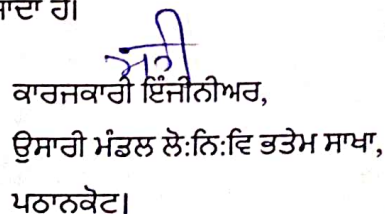 ਜਾਂਦਾ ਹੈ।
ਸਹੀ
ਕਾਰਜਕਾਰੀ ਇੰਜੀਨੀਅਰ,
ਉਸਾਰੀ ਮੰਡਲ ਲੋ:ਨਿ:ਵਿ ਭਤੇਮ ਸਾਖਾ,
ਪਠਾਨਕੋਟ।